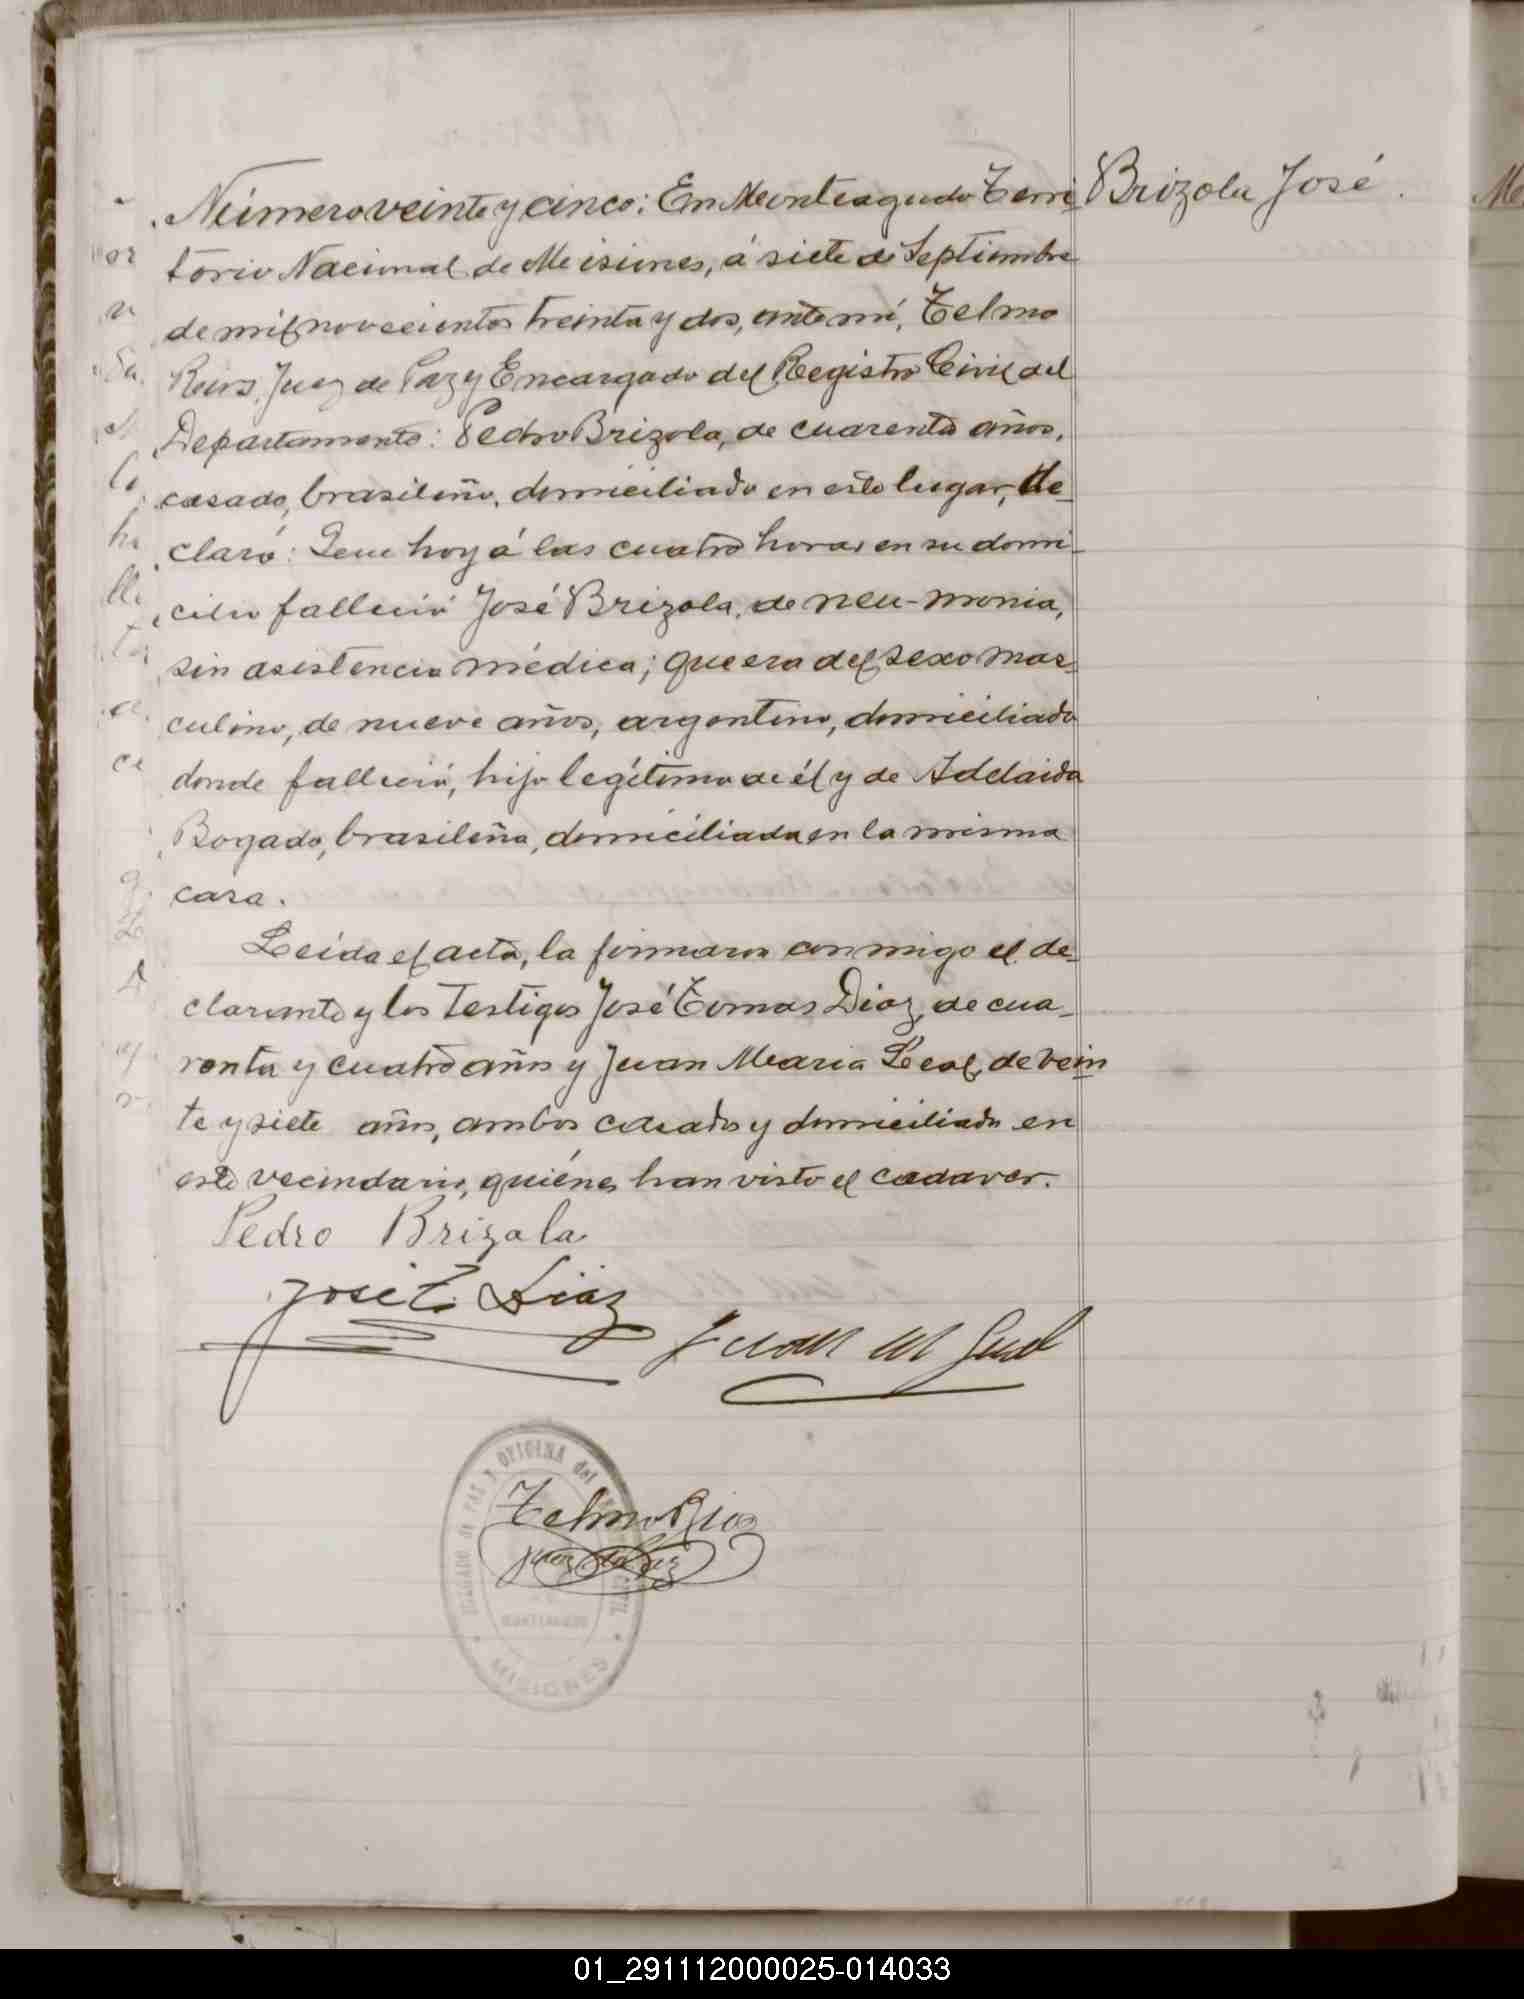 Número veinte y cinco: En Monteagudo Terri-
torio Nacional de Misiones, á siete de Septiembre
de mil novecientos treinta y dos, ante mí, Telmo
Rios, Juez de Paz y Encargado del Registro Civil del
Departamento: Pedro Brizola, de cuarenta años,
casado, brasileño, domiciliado en este lugar, de-
claró: Que hoy á las cuatro horas en su domi-
cilio falleció José Brizola, de neu-monia,
sin asistencia médica; que era del sexo mas-
culino, de nueve años, argentino, domiciliado
donde falleció, hijo legítimo de él y de Adelaida
Bogado, brasileña, domiciliada en la misma
casa.
Leida el acta, la firmaron conmigo el de-
clarante y los testigos José Tomas Diaz, de cua-
renta y cuatro años y Juan Maria Leal, de vein-
te y siete años, ambos casados y domiciliado en
este vecindario, quiénes han visto el cadaver.
Pedro Brizala
José T. Diaz
Juan M Leal
Telmo Rios
Juez de Paz
JUZGADO de PAZ Y OFICINA del CIVIL
MISIONES
Brizola José.
01_291112000025-014033